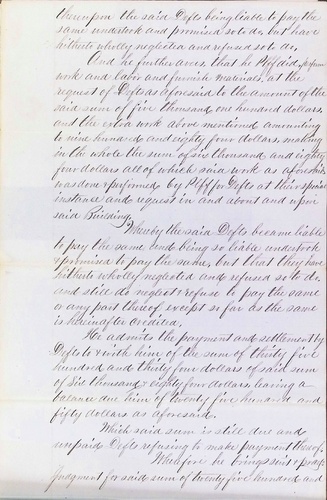 thereupon the said Defts being liable to pay the
same undertook and promised so to do, but have
hitherto wholly neglected and refused so to do,
And he further avers that he Plff did perform
work and labor and furnish materials, at the
request of Defts as aforesaid to the amount of the
said sum of five thousand one hundred dollars,
and the extra work above mentioned amounting
to nine hundred and eighty four dollars, making
in the whole the sum of six thousand and eighty
four dollars all of which said work as aforesaid
was done & performed by Plff for Defts at their special
instance and request in and about and upon
said Building,
Whereby the said Defts became liable
to pay the same and being so liable undertook
& promised to pay the same, but that they have
hitherto wholly neglected and refused so to do
and still do neglect & refuse to pay the same
or any part thereof except so far as the same
is hereinafter credited,
He admits the payment and settlement by
Defts to & with him of the sum of thirty five
hundred and thirty four dollars of said sum
of six thousand & eighty four dollars leaving a
balance due him of twenty five hundred and
fifty dollars as aforesaid.
Which said sum is still due and
unpaid, Defts refusing to make payment thereof.
Wherefore he brings suit & prays
Judgment for said sum of twenty five hundred and